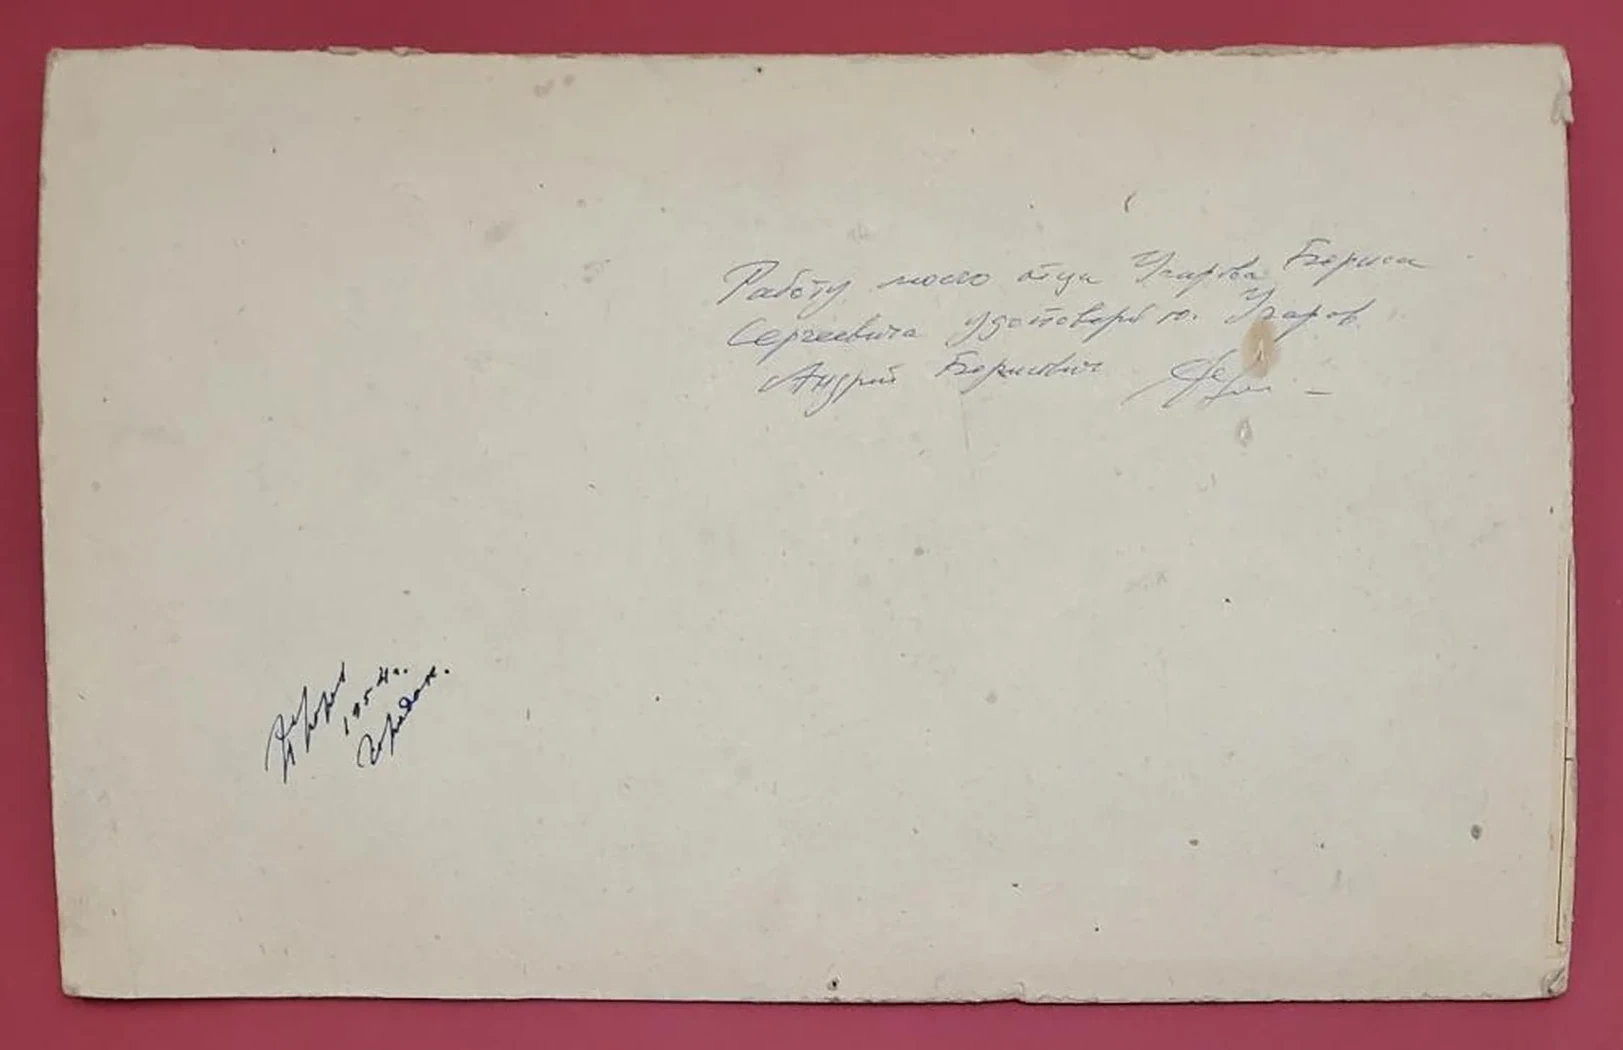 Работу моего отца Угарова Бориса
Сергеевича удостоверяю. Угаров
Андрей Борисович
1954 г.